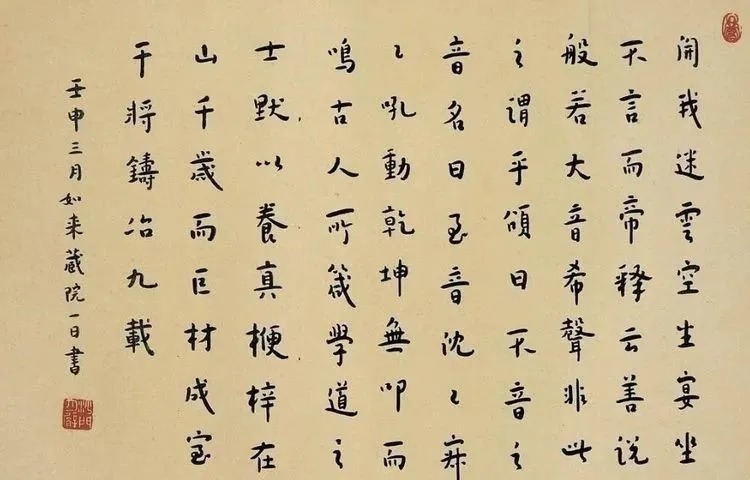 開我迷雲空生宴坐
不言而帝釋云善説
般若大音希聲非此
之謂乎頌曰不音之
音名曰至音沈々寂
々吼動乾坤無叩而
鳴古人所箴學道之
士默以養真楩梓在
山千歲而巨材成室
干將鑄冶九載
壬申三月如来藏院一日書